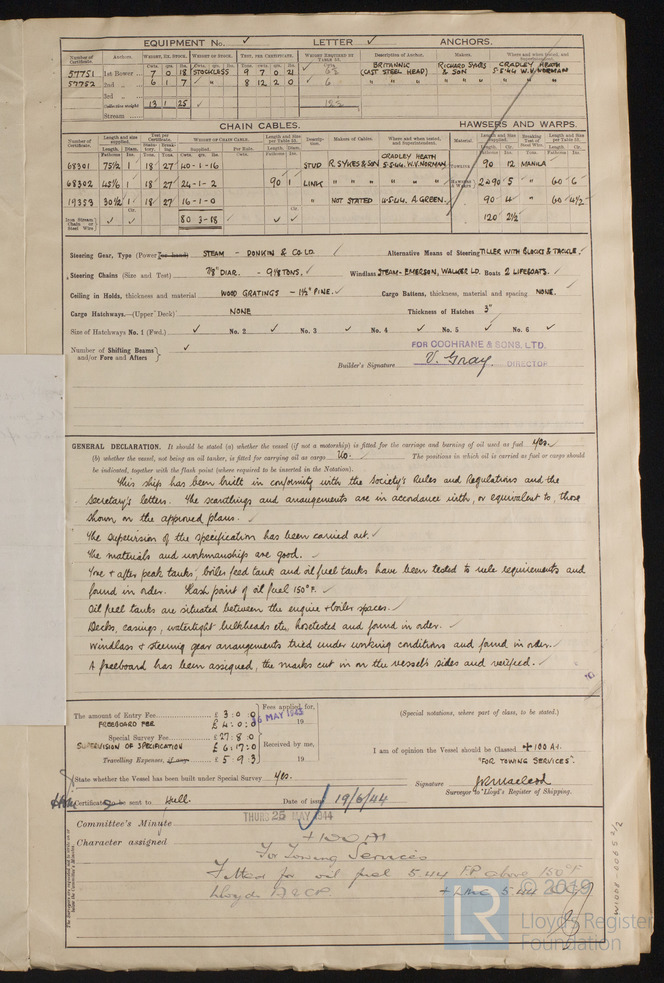 EQUIPMENT No. ✓ LETTER ✓ ANCHORS.
Number of Certificate. Anchors. Weight, Ex. Stock. Weight of Stock. Test, per Certificate. Weight Required by Table 22. Description of Anchor. Makers. Where and when tested, and Superintendent.
57751 1st Bower 7 0 18 STOCKLESS 9 7 0 21 BRITANNIC (CAST STEEL HEAD) RICHARD SYKES & SON CRADLEY HEATH 5.5.44 W.V. NORMAN
57752 2nd „ 6 1 7 „ 8 12 2 0 6 „ „ „ „ „ „
3rd „
Collective weight 13 1 25 12½
Stream
CHAIN CABLES. HAWSERS AND WARPS.
Number of Certificate. Length and size supplied. Test per Certificate. WEIGHT OF CHAIN CABLE. Length and Size per Table 22. Description. Makers of Cables. Where and when tested, and Superintendent. Material. Length and Size supplied. Breaking Test of Steel Wire. Length and Size per Table 22.
68301 75½ 1 18 27 40-1-16 STUD R. SYKES & SON CRADLEY HEATH 5.5.44. W.V. NORMAN 90 12 MANILA
68302 45⅙ 1 18 27 24-1-2 90 1 LINK „ „ „ 2@90 5 „ 60 6
19353 30½ 1 18 27 16-1-0 „ NOT STATED 4.5.44. A. GREEN. 90 4 „ 60 4½
Iron Stream Chain or Steel Wire ✓ ✓ 80 3-18 ✓ ✓ 120 2½
Steering Gear, Type (Power or hand) STEAM - DONKIN & CO LD. ✓ Alternative Means of Steering TILLER WITH BLOCKS & TACKLE. ✓
Steering Chains (Size and Test) 7/8" DIAR. - 9⅛ TONS. ✓ Windlass STEAM-EMERSON, WALKER LD. Boats 2 LIFEBOATS. ✓
Ceiling in Holds, thickness and material WOOD GRATINGS - 1½" PINE. ✓ Cargo Battens, thickness, material and spacing NONE.
Cargo Hatchways.—(Upper Deck) NONE Thickness of Hatches 3"
Size of Hatchways No. 1 (Fwd.) ✓ No. 2 ✓ No. 3 ✓ No. 4 ✓ No. 5 ✓ No. 6 ✓
Number of Shifting Beams and/or Fore and Afters ✓
FOR COCHRANE & SONS, LTD.
Builder's Signature V. Gray. DIRECTOR
GENERAL DECLARATION. It should be stated (a) whether the vessel (if not a motorship) is fitted for the carriage and burning of oil used as fuel Yes.
(b) whether the vessel, not being an oil tanker, is fitted for carrying oil as cargo No. The positions in which oil is carried as fuel or cargo should
be indicated, together with the flash point (where required to be inserted in the Notation).
This ship has been built in conformity with the Society's Rules and Regulations and the
Secretary's letters. The scantlings and arrangements are in accordance with, or equivalent to, those
shown on the approved plans. ✓
The supervision of the specification has been carried out. ✓
The materials and workmanship are good. ✓
Fore & after peak tanks, boiler feed tank and oil fuel tanks have been tested to rule requirements and
found in order. Flash point of oil fuel 150°F. ✓
Oil fuel tanks are situated between the engine & boiler spaces. ✓
Decks, casings, watertight bulkheads etc, hosetested and found in order. ✓
Windlass & steering gear arrangements tried under working conditions and found in order. ✓
A freeboard has been assigned, the marks cut in on the vessel's sides and verified. ✓
The amount of Entry Fee £ 3 : 0 : 0 Fees applied for,
FREEBOARD FEE £ 4 : 0 : 0 16 MAY 1944 19
Special Survey Fee £ 27 : 8 : 0
SUPERVISION OF SPECIFICATION £ 6 : 17 : 0 Received by me,
Travelling Expenses, if any £ 5 : 9 : 3 19
(Special notations, where part of class, to be stated.)
I am of opinion the Vessel should be Classed +100 A1.
"FOR TOWING SERVICES".
State whether the Vessel has been built under Special Survey Yes.
Signature
Surveyor to Lloyd's Register of Shipping.
Certificate to be sent to Hull. Date of issue 19/6/44
Committee's Minute THURS 25 MAY 1944
Character assigned +100 A1
For Towing Services
Fitted for oil fuel 5.44 F.P. above 150°F
Lloyds A&CP. + LMC 5.44
© 2019
LR
Lloyd's Register
Foundation
W1008-0065 2/2